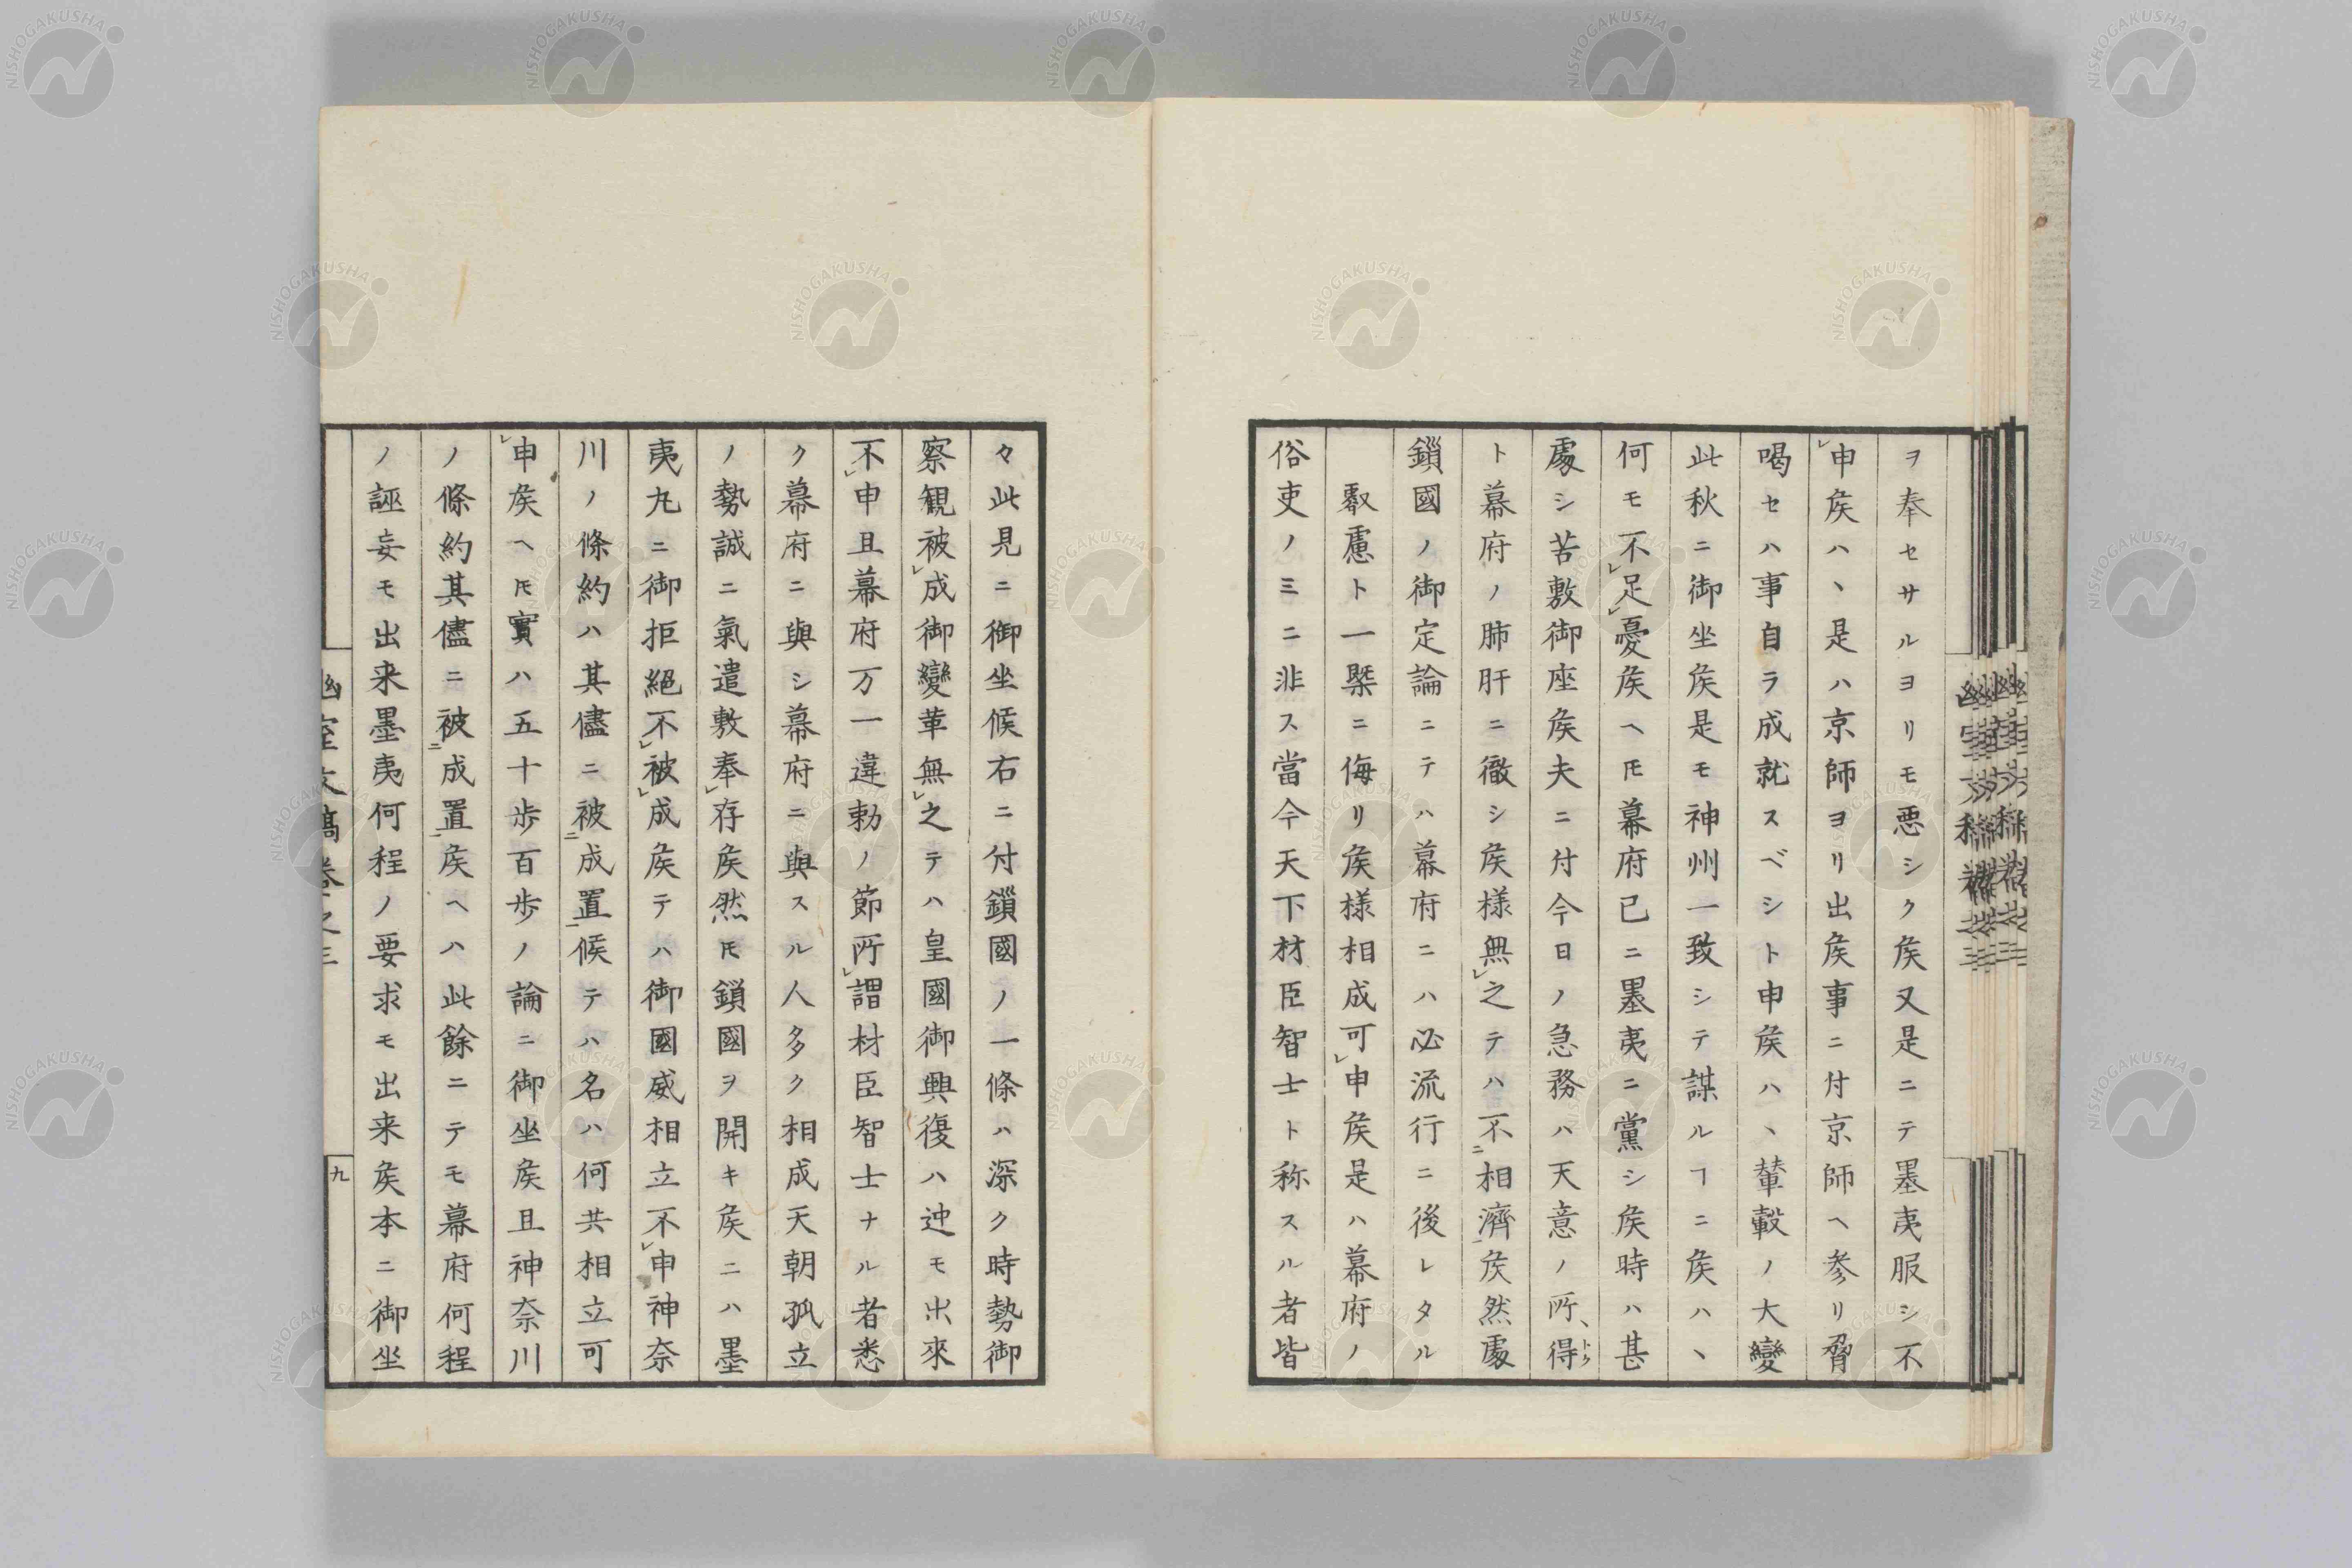 ヲ奉セサルヨリモ悪シク矦又是ニテ墨夷服シ不
レ申矦ハヽ是ハ京師ヨリ出矦事ニ付京師ヘ参リ脅
喝セハ事自ラ成就スベシト申矦ハヽ輦轂ノ大變
此秋ニ御坐矦是モ神州一致シテ謀ルヿニ矦ハヽ
何モ不レ足レ憂矦ヘ𪜈幕府已ニ墨夷ニ黨シ矦時ハ甚
處シ苦敷御座矦夫ニ付今日ノ急務ハ天意ノ所、得トク
ト幕府ノ肺肝ニ徹シ矦様無レ之テハ不二相濟一矦然處
鎖國ノ御定論ニテハ幕府ニハ必流行ニ後レタル
叡慮ト一槩ニ侮リ矦様相成可レ申矦是ハ幕府ノ
俗吏ノミニ非ス當今天下材臣智士ト称スル者皆
々此見ニ御坐候右ニ付鎖國ノ一條ハ深ク時勢御
察観被レ成御變革無レ之テハ皇國御興復ハ迚モ出來
不レ申且幕府万一違勅ノ節所レ謂材臣智士ナル者悉
ク幕府ニ與シ幕府ニ與スル人多ク相成天朝孤立
ノ勢誠ニ氣遣敷奉レ存矦然𪜈鎖國ヲ開キ矦ニハ墨
夷丸ニ御拒絕不レ被レ成矦テハ御國威相立不レ申神奈
川ノ條約ハ其儘ニ被二成置一候テハ名ハ何共相立可
レ申矦ヘ𪜈實ハ五十歩百歩ノ論ニ御坐矦且神奈川
ノ條約其儘ニ被二成置一矦ヘハ此餘ニテモ幕府何程
ノ誣妄モ出来墨夷何程ノ要求モ出来矦本ニ御坐
幽室文稿卷之三
九
NISHOGAKUSHA